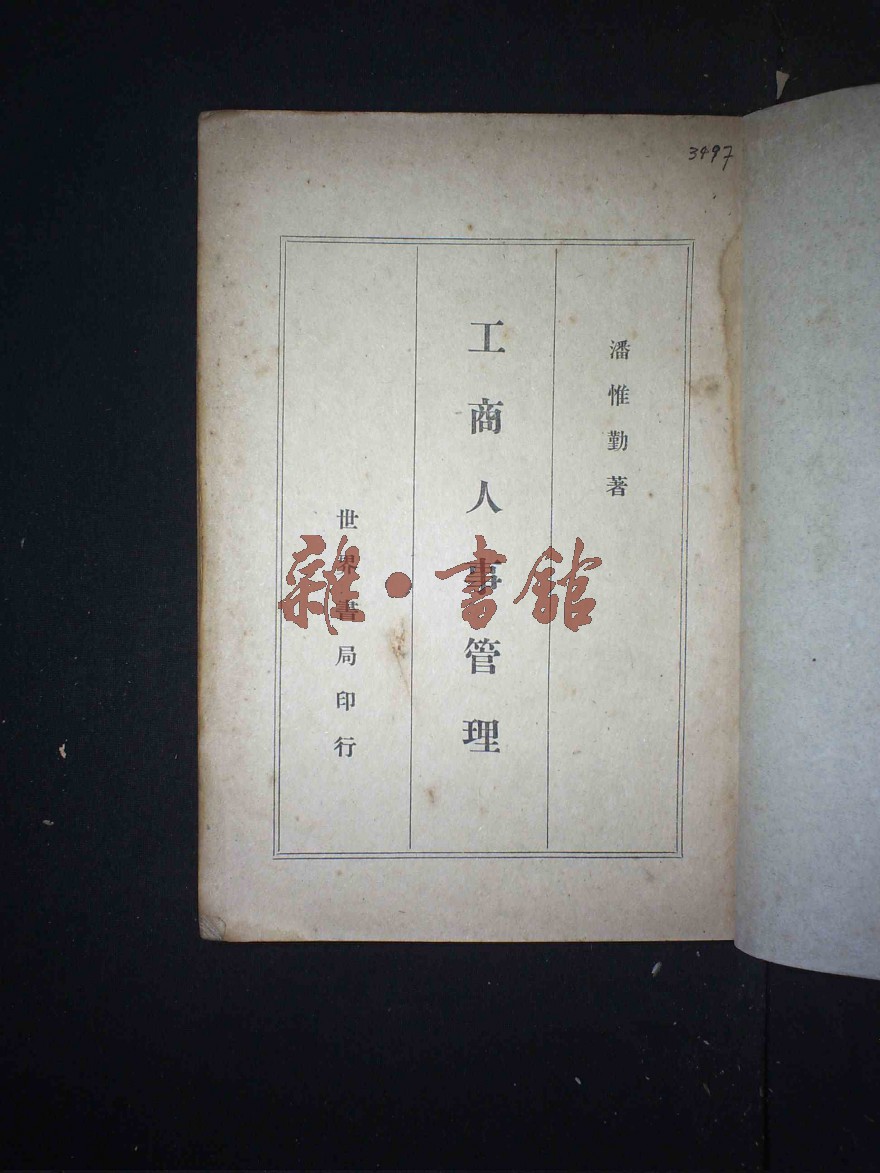 3497
潘惟勤著
工商人事管理
世界書局印行
雜·書館